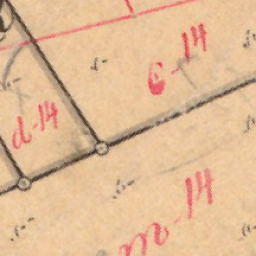 c-14
d-14
m-14